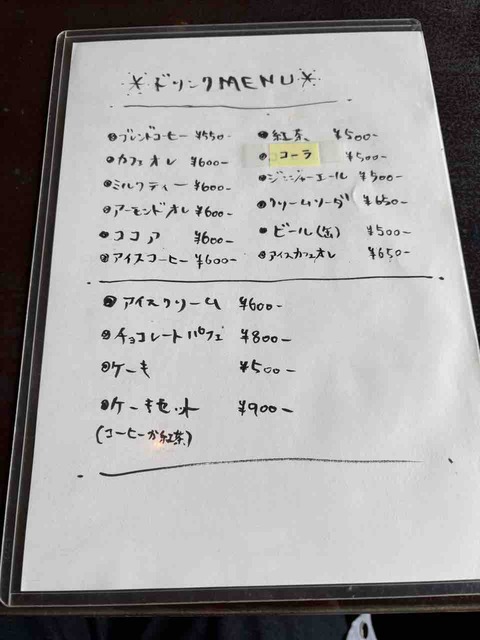 ドリンクMENU
ブレンドコーヒー ¥550-
カフェオレ ¥600-
ミルクティー ¥600-
アーモンドオレ ¥600-
ココア ¥600-
アイスコーヒー ¥600-
紅茶 ¥500-
コーラ ¥500-
ジンジャーエール ¥500-
クリームソーダ ¥650-
ビール(缶) ¥500-
アイスカフェオレ ¥650-
アイスクリーム ¥600-
チョコレートパフェ ¥800-
ケーキ ¥500-
ケーキセット ¥900-
(コーヒーか紅茶)